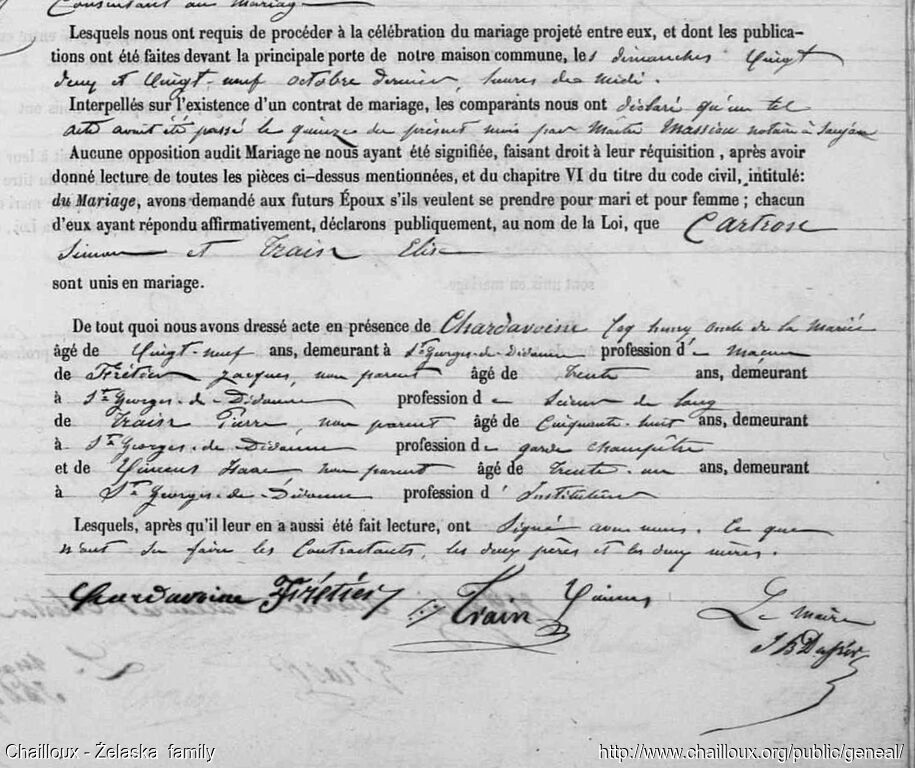 Consentant au Mariage
Lesquels nous ont requis de procéder à la célébration du mariage projeté entre eux, et dont les publica-
tions ont été faites devant la principale porte de notre maison commune, les dimanches Vingt
deux et Vingt-neuf octobre dernier, heures de midi.
Interpellés sur l'existence d'un contrat de mariage, les comparants nous ont déclaré qu'un tel
acte avait été passé le quinze du présent mois par Maître Massiou notaire à Saujon
Aucune opposition audit Mariage ne nous ayant été signifiée, faisant droit à leur réquisition, après avoir
donné lecture de toutes les pièces ci-dessus mentionnées, et du chapitre VI du titre du code civil, intitulé:
du Mariage, avons demandé aux futurs Époux s'ils veulent se prendre pour mari et pour femme ; chacun
d'eux ayant répondu affirmativement, déclarons publiquement, au nom de la Loi, que Cartron
Simon et Train Elise
sont unis en mariage.
De tout quoi nous avons dressé acte en présence de Chardavoine henry oncle de la Mariée
âgé de Vingt-neuf ans, demeurant à St Georges-de-Didonne profession de maçon
de Frétier Jacques, non parent âgé de Trente ans, demeurant
à St Georges-de-Didonne profession de Scieur de long
de Train Pierre, non parent âgé de Cinquante-huit ans, demeurant
à St Georges-de-Didonne profession de garde champêtre
et de Isaac non parent âgé de Trente-un ans, demeurant
à St Georges-de-Didonne profession d' Instituteur
Lesquels, après qu'il leur en a aussi été fait lecture, ont Signé avec nous. Ce que
n'ont su faire les Contractants, les deux pères et les deux mères.
Chardavoine Frétier Train Le maire
Chailloux - Żelaska family http://www.chailloux.org/public/geneal/